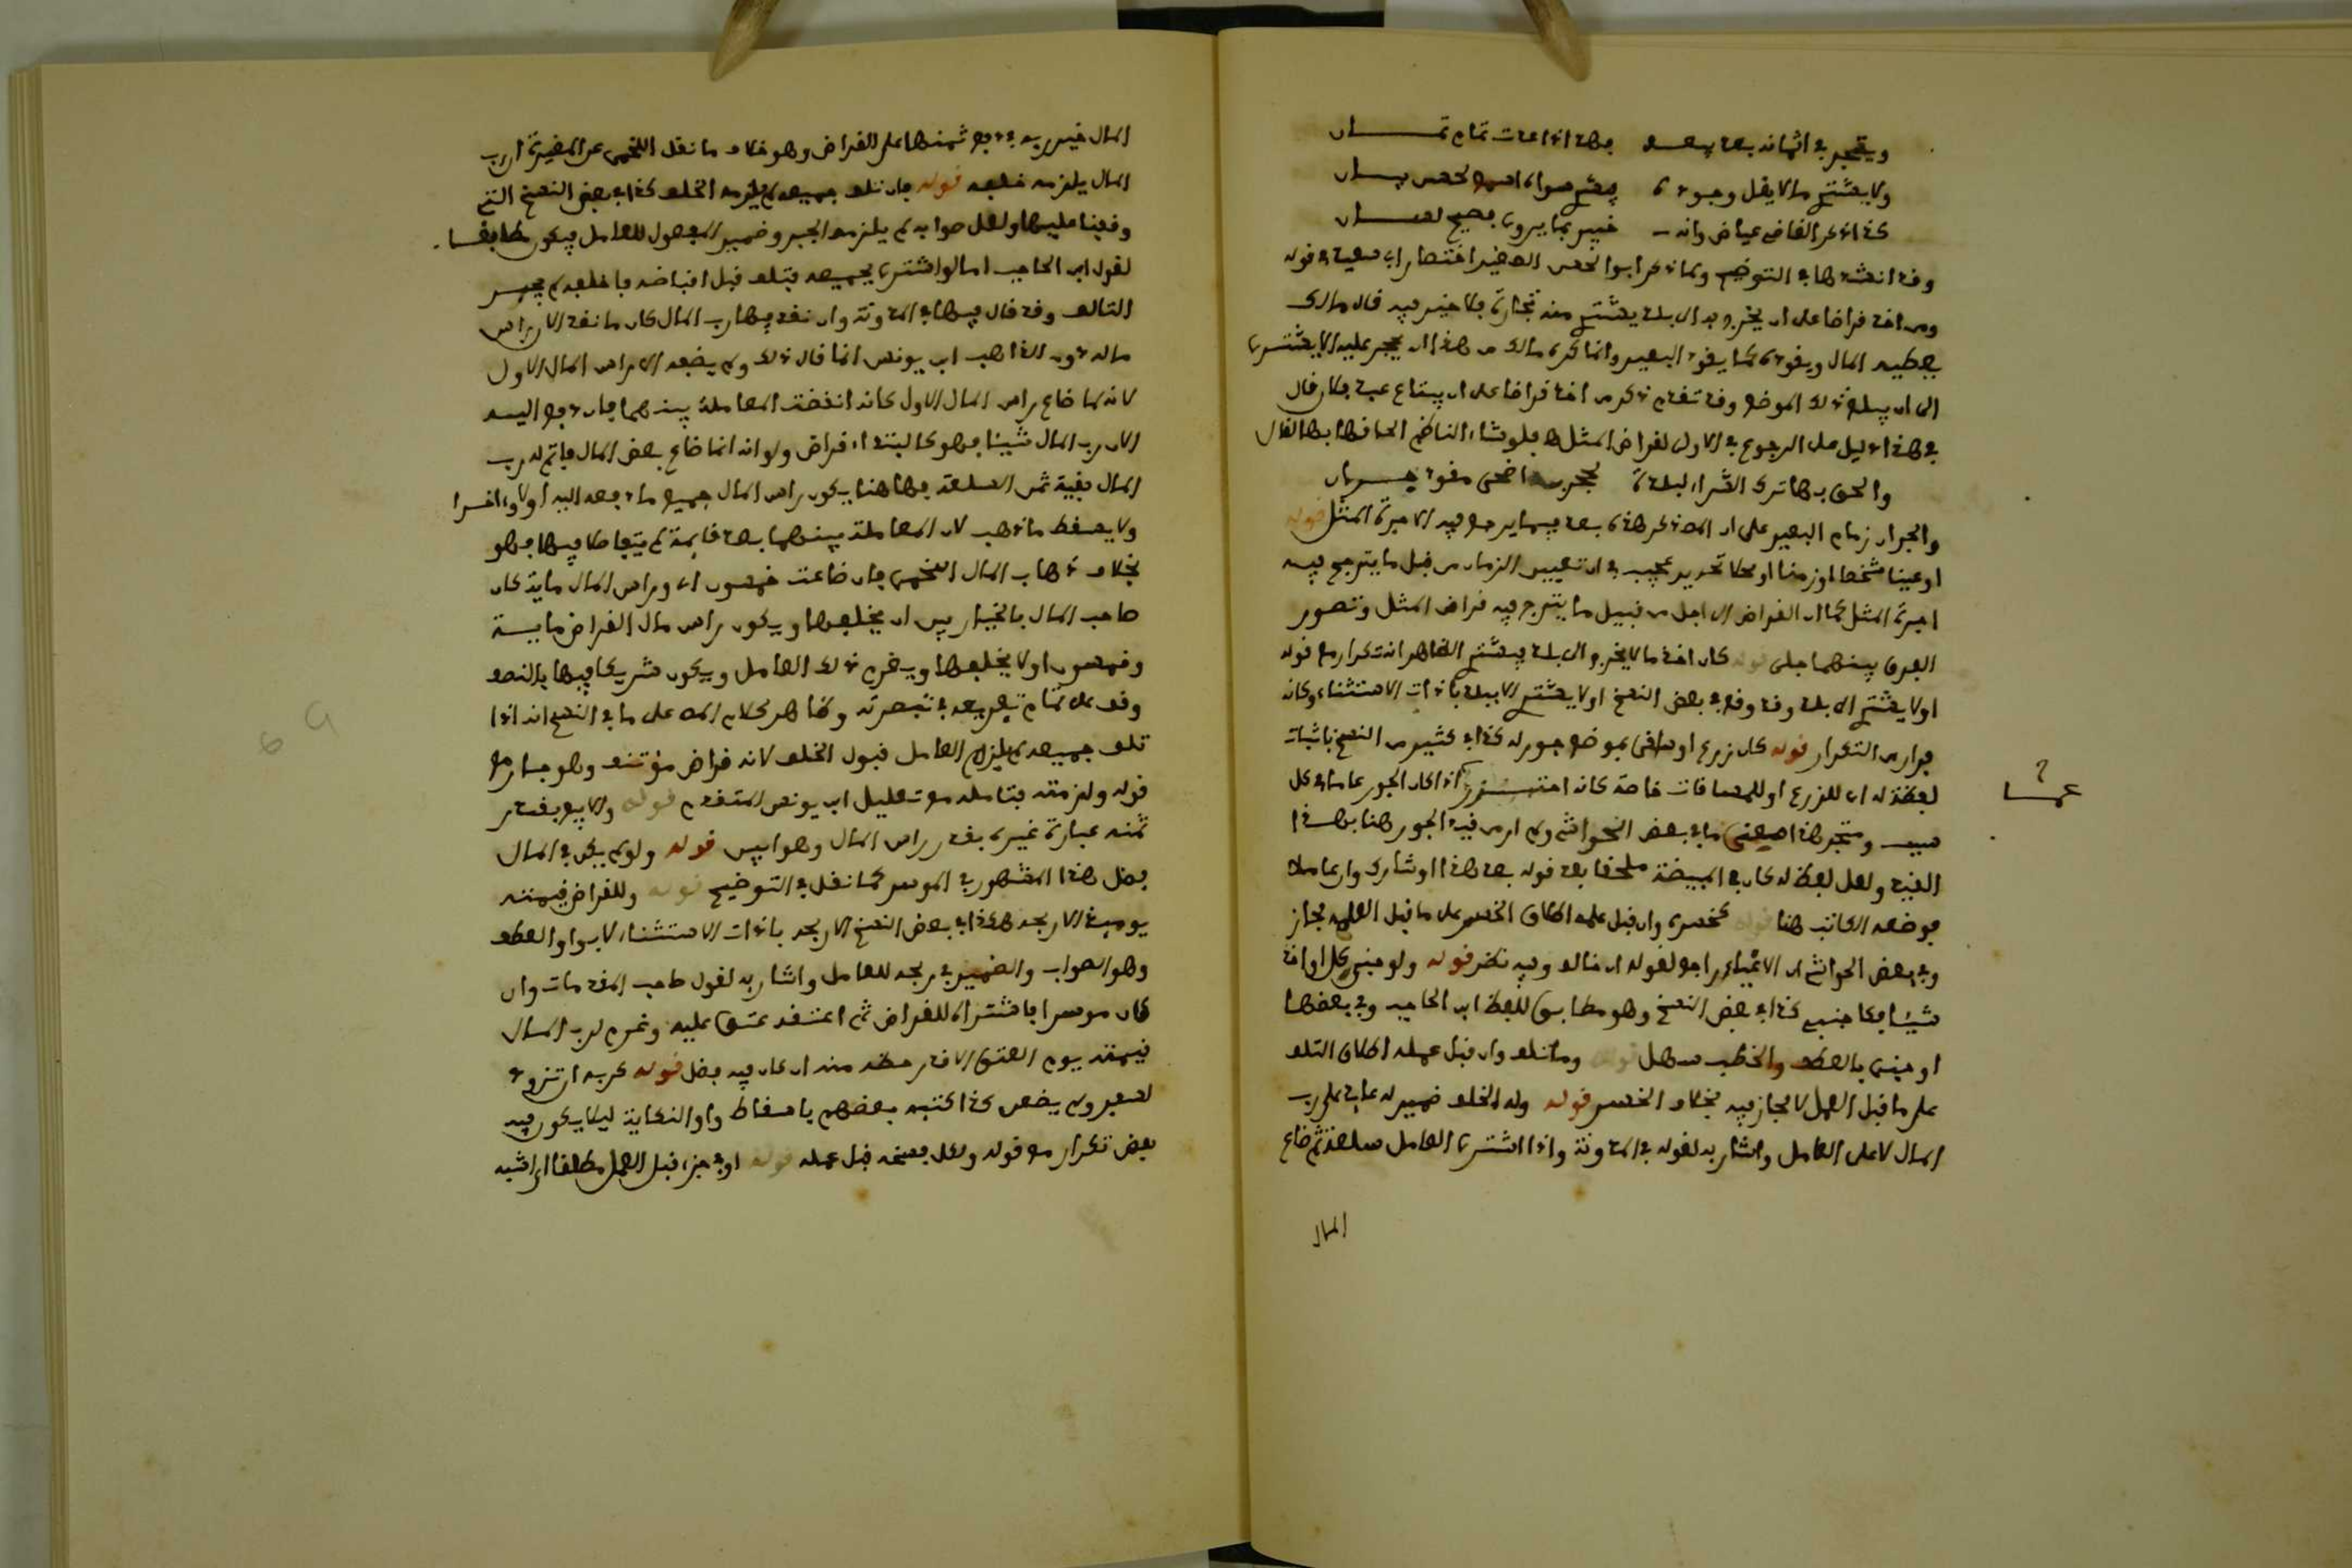 ويتجر في اثمانه بعد بيعه فهذا اذا عدت تمام ثمان
ولا يشتري ما لا يقل وجوده
كذا ذكر القاضي عياض وانه خبير بما يروي فصيح لسان
وقد انشدها في التوضيح وكما ذكر ابو الحسن الصغير اختصارا في قوله
ومن اخذ قراضا على ان يخرج به الى بلد يشتري منه تجارة فلا خير فيه قال مالك
يعطيه المال ويقوده كما يقود البعير وانما كره مالك من هذا ان يحجر عليه الا يشتري
الى ان يبلغ ذلك الموضع وقد تقدم ذكر من اخذ قراضا على ان يبتاع عبد فلان قال
في هذا دليل على الرجوع في الاول لقراض المثل فلو شاء الناظم الحافها بها لقال
والحق بها ترك الشراء لبلدة اضحى مقود جران
والجران زمام البعير على ان المص ذكر هذه بعد فيما يرجع فيه الى اجرة المثل قوله
او عين شخصا او زمنا او محلا تحريره عجيب في ان تعيين الزمان من قبل ما يترجح فيه
اجرة المثل كما ان القراض الى اجل من قبيل ما يترجح فيه قراض المثل وتصور
الفرق بينهما جلي قوله كان اخذ مالا يخرج الى بلد فيشتري الظاهر انه تكرار مع قوله
او لا يشتري الى بلد وقد وقع في بعض النسخ او لا يشتري الا ببلد باداة الاستثناء وكانه
فرار من التكرار قوله كان زرع او سافر بموضع جور له كذا في كثير من النسخ باثبات
لفظة له اي للزرع او للمسافات خاصة كانه اذا كان الجور عاما في كل
ما في بعض الحواشي ولم ار من قيد الجور هنا بهذا
القيد ولعل لفظ له كان في المبيضة ملحقا بعد قوله بعد هذا او شارك وان عاملا
فوضعه الكاتب هنا قوله كخسره وان قبل عمله اطلاق الخسر على ما قبل العمل مجاز
وفي بعض الحواشي ان الاغياء راجع لقوله ان خالف وفيه نظر قوله ولو جنى كل او اخذ
شيئا فكاجنبي كذا في بعض النسخ وهو مطابق للفظ ابن الحاجب وفي بعضها
او جنى بالعطف والخطب سهل قوله وما تلف وان قبل عمله اطلاق التلف
على ما قبل العمل لا مجاز فيه بخلاف الخسر قوله وله الخلف ضمير له عائد على رب
المال لا على العامل واشار به لقوله في المدونة واذا اشترى العامل سلعة ثم ضاع
المال
المال خير ربه في دفع ثمنها على القراض وهو خلاف ما نقل اللخمي عن المغيرة ان رب
المال يلزمه خلفه قوله فان تلف جميعه لم يلزمه الخلف كذا في بعض النسخ التي
وقفنا عليها ولعل صوابه لم يلزمه الجبر وضمير المفعول للعامل فيكون مطابقا
لقول ابن الحاجب اما لو اشترى بجميعه فتلف قبل اقباضه فاخلفه لم يجبر
التالف وقد قال فيها في المدونة وان نقد فيها رب المال كان ما نقد الان راس
ماله دون الذاهب ابن يونس انما قال ذلك ولم يضفه الى راس المال الاول
لانه لما ضاع راس المال الاول كانه انقضت المعاملة بينهما فان دفع اليه
الان رب المال شيئا فهو كابتداء قراض ولو انه انما ضاع بعض المال فاتم له رب
المال بقية ثمن السلعة فهاهنا يكون راس المال جميع ما دفعه اليه اولا واخرا
ولا يسقط ما ذهب لان المعاملة بينهما بعد قائمة لم يتفاصلا فيها فهو
بخلاف ذهاب المال اللخمي فان ضاعت خمسون اي وراس المال مائة كان
صاحب المال بالخيار بين ان يخلفها ويكون راس مال القراض مائة
وخمسون او لا يخلفها ويغرم ذلك العامل ويكون شريكا فيها بالنصف
وقف على تمام تفريعه في تبصرته وظاهر كلام المص على ما في النسخ انه اذا
تلف جميعه لم يلزم العامل قبول الخلف لانه قراض مؤتنف وهو جار مع
قوله ولزمته فتامله مع تعليل ابن يونس المتقدم قوله والا بيع بقدر
ثمنه عبارة غيره بقدر راس المال وهو ابين قوله ولو لم يكن في المال
فضل هذا المشهور في الموسر كما نقل في التوضيح قوله وللقراض قيمته
يومئذ الا ربحه هكذا في بعض النسخ الا ربحه باداة الاستثناء لا بواو العطف
وهو الصواب والضمير في ربحه للعامل واشار به لقول صاحب المقدمات وان
كان موسرا فاشتراه للقراض ثم اعتقه عتق عليه وغرم لرب المال
قيمته يوم العتق الا قدر حظه منه ان كان فيه فضل قوله
كذا كتبه بعضهم باسقاط واو النكاية ليلا يكون فيه
بعض تكرار مع قوله ولكل فسخه قبل عمله قوله او بجزء قبل العمل مطلقا اي اشبه